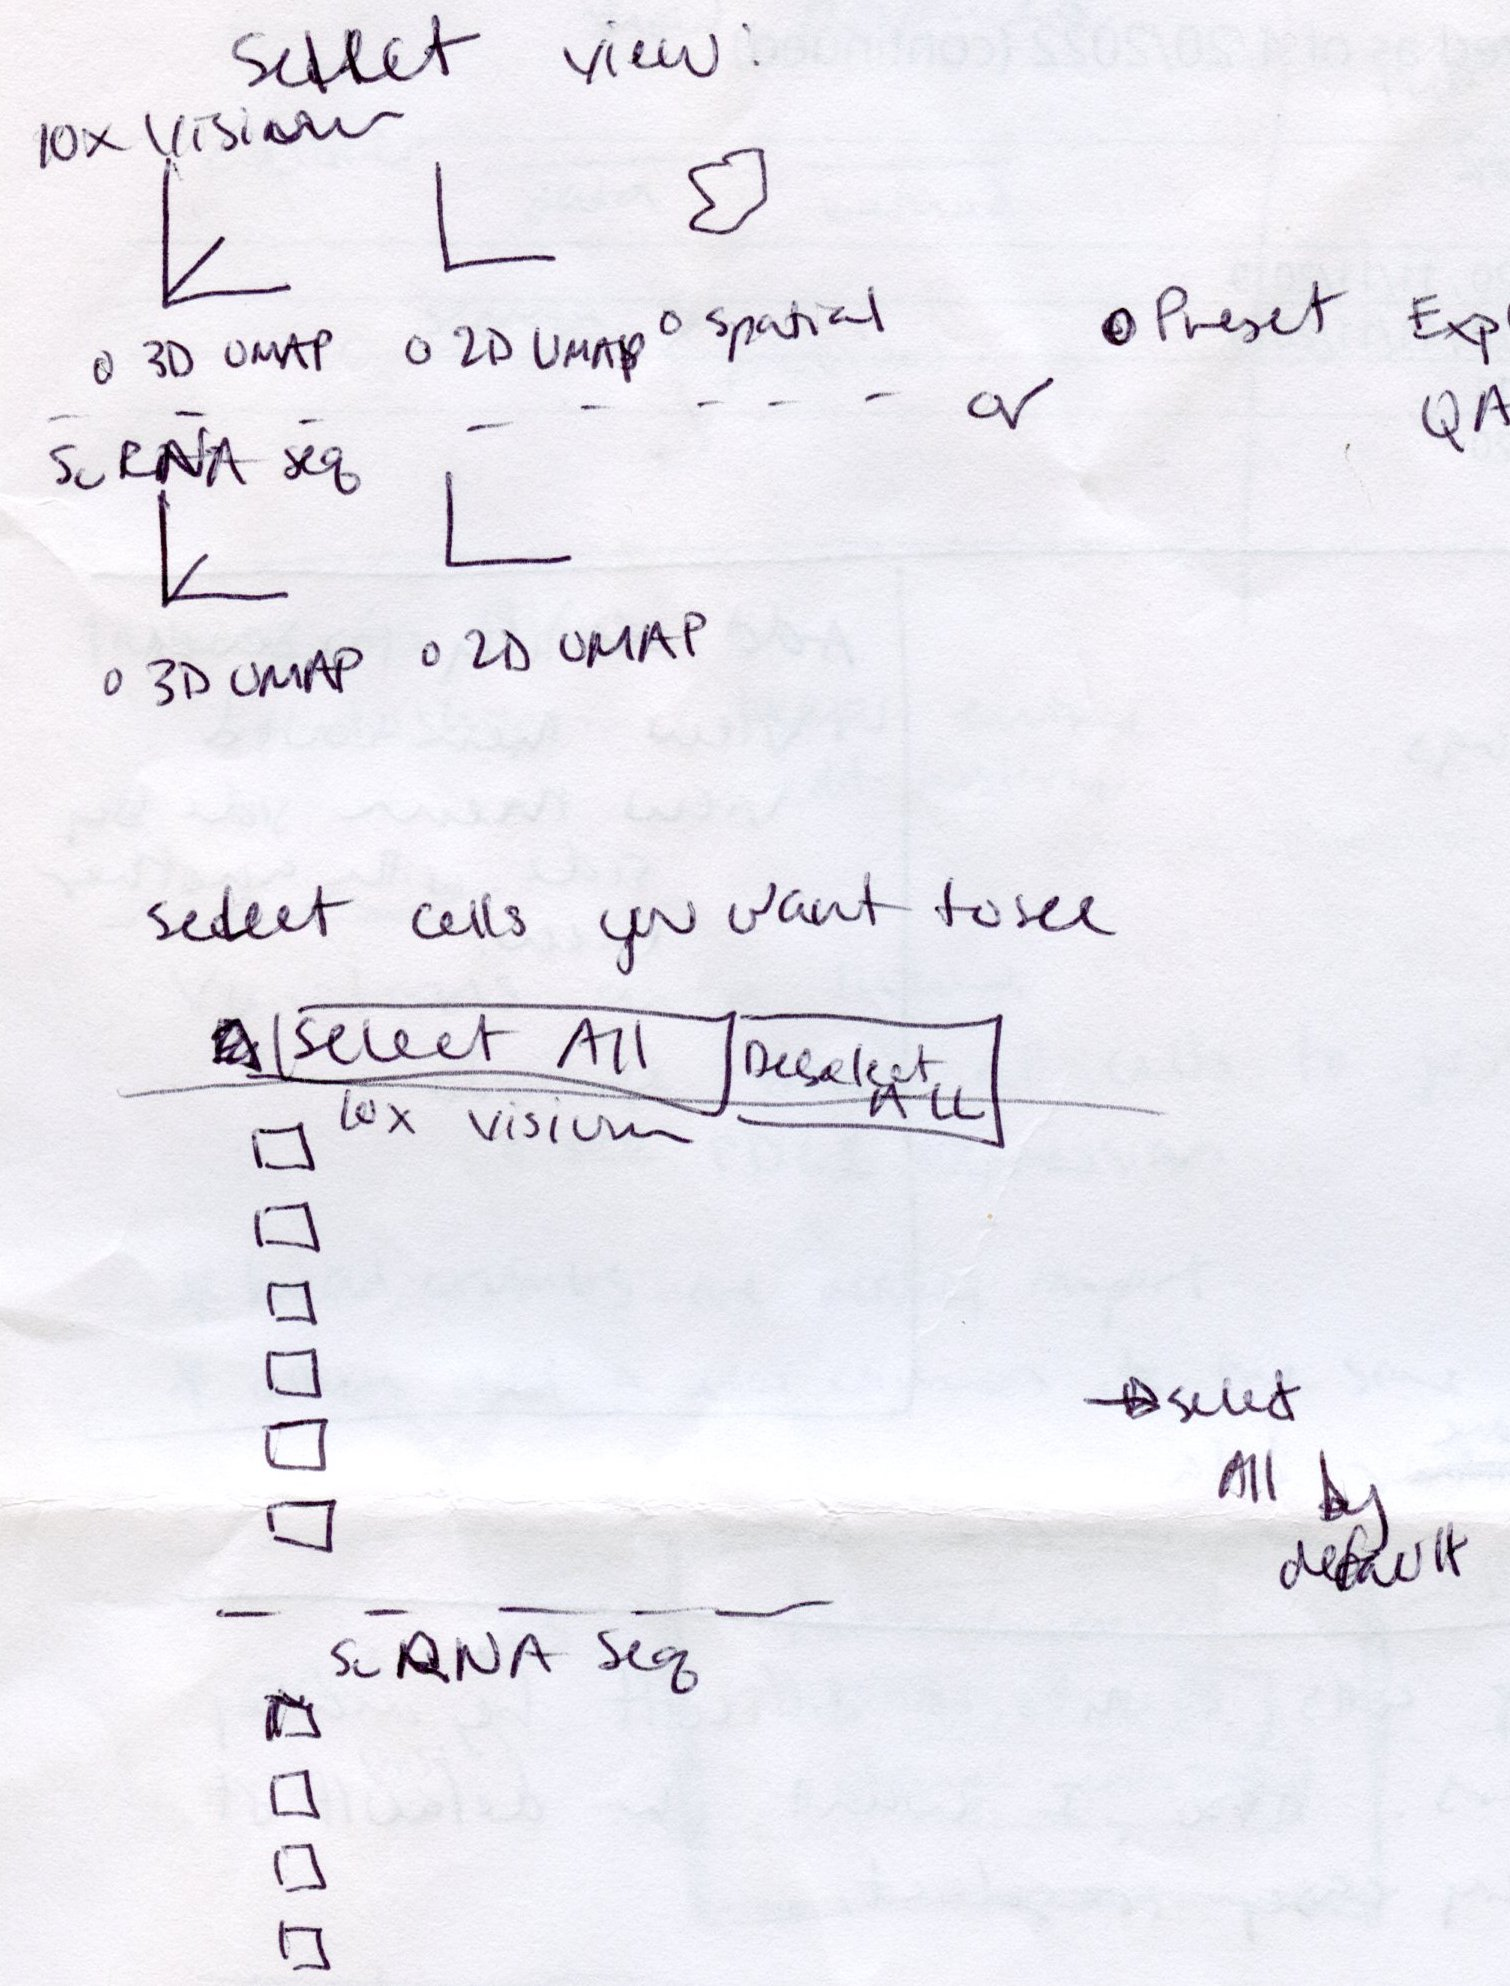 Select view:
10x Visium
o 3D UMAP o 2D UMAP o spatial
or
o Preset Exp
QA
Sc RNA seq
o 3D UMAP o 2D UMAP
select cells you want to see
Select All Deselect All
10x Visium
→ select
All by
default
Sc RNA Seq